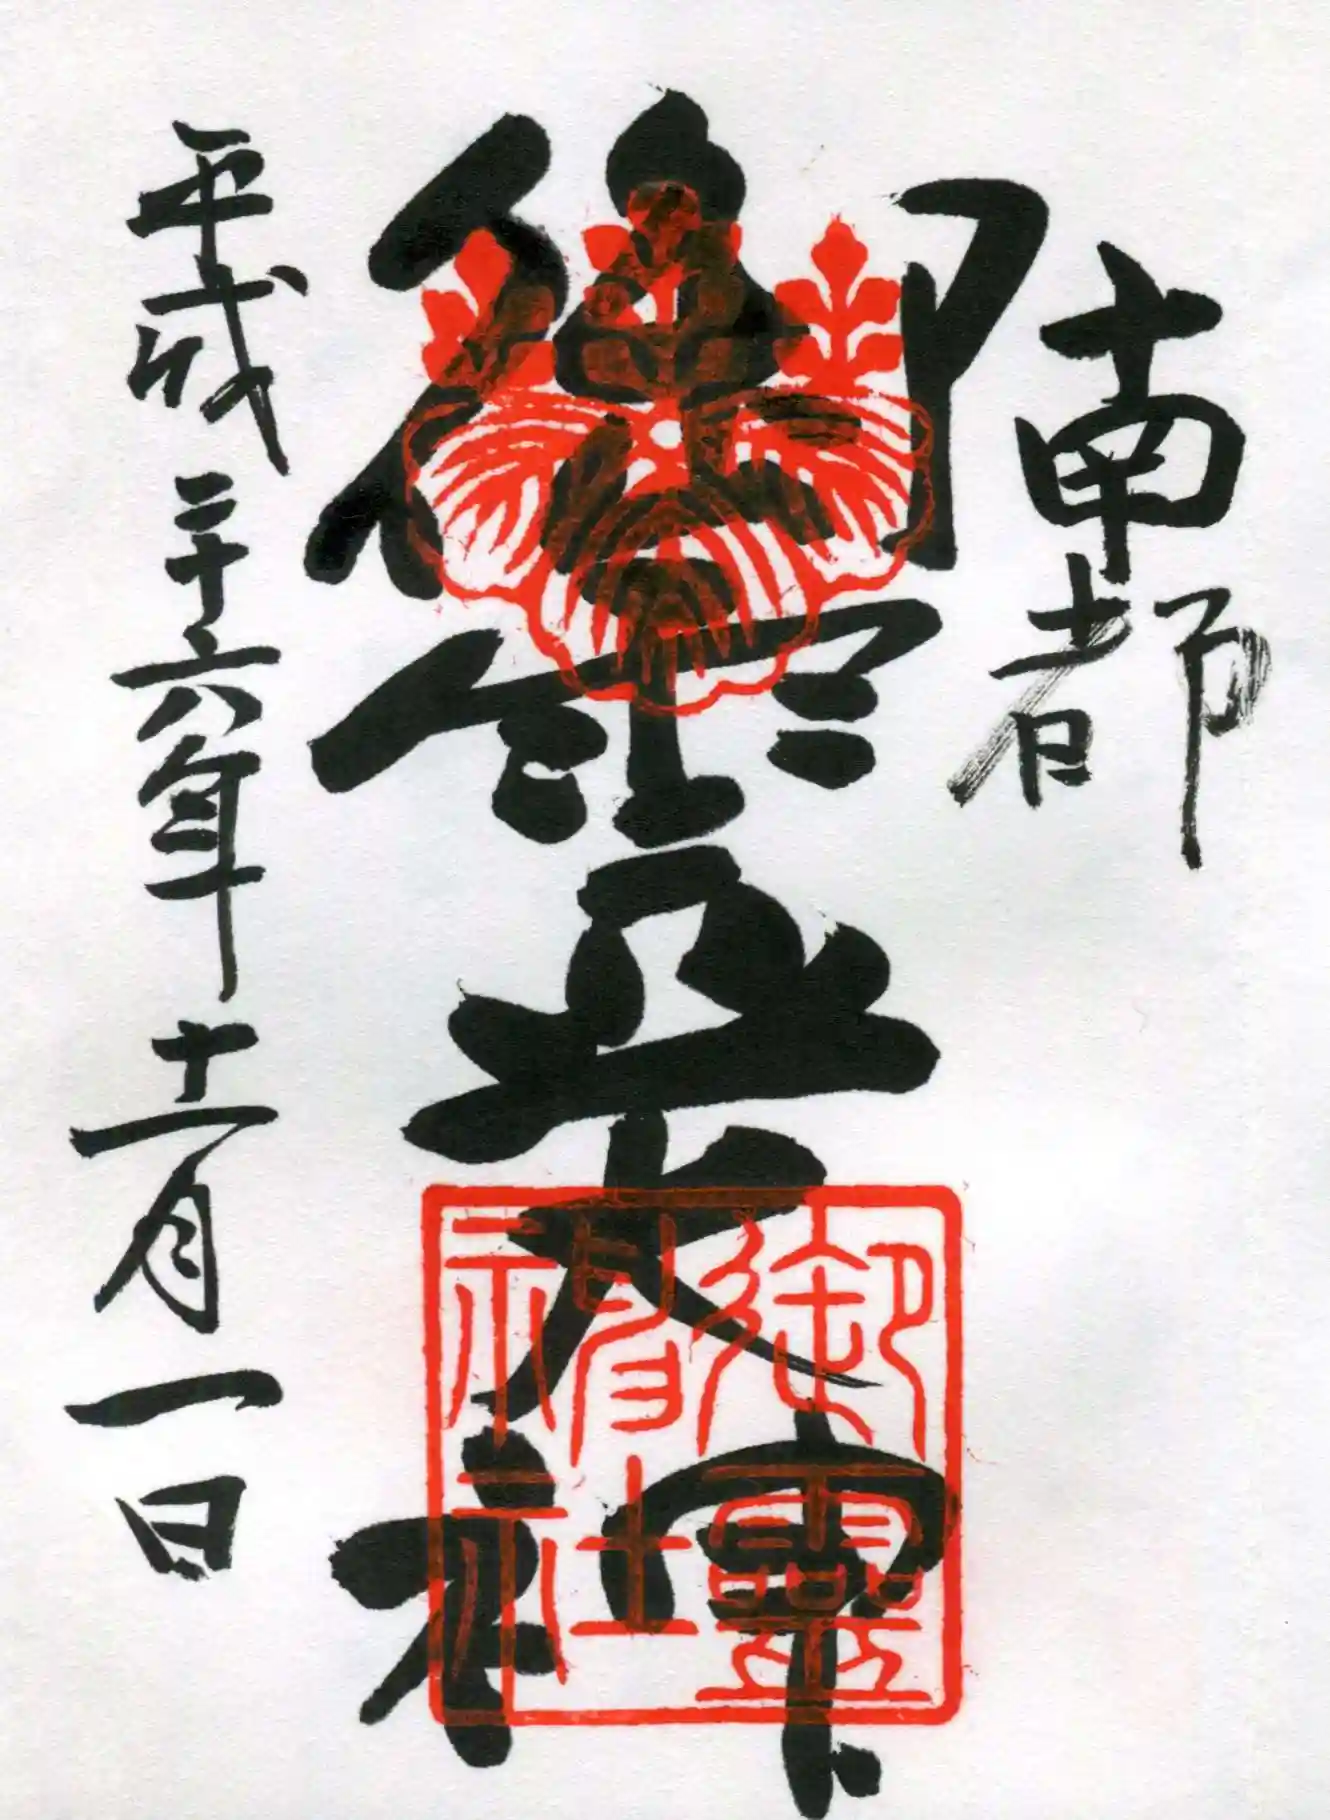 南都
御霊大神
平成二十六年十二月一日
御靈
神社